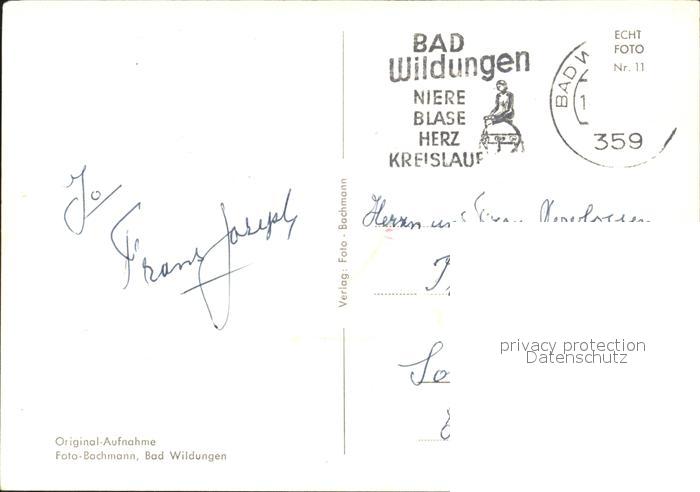 ECHT
FOTO
Nr. 11
BAD
Wildungen
NIERE
BLASE
HERZ
KREISLAUF
BAD W
1
359
Jo
Franz Joseph
Verlag: Foto-Bachmann
Herrn und Frau
So
privacy protection
Datenschutz
Original-Aufnahme
Foto-Bachmann, Bad Wildungen